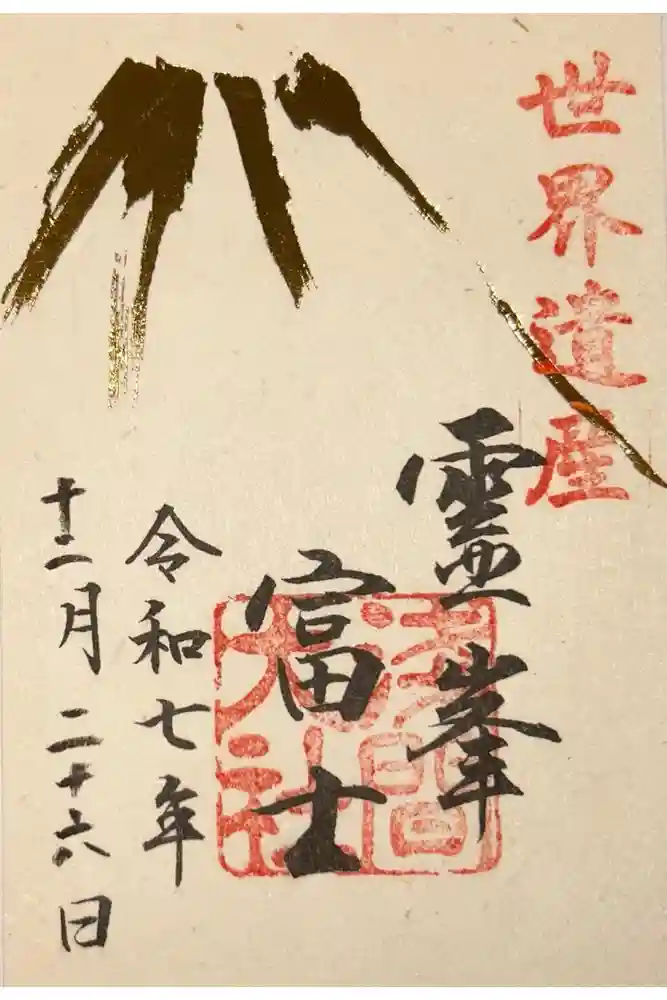 世界遺産
霊峯
富士
浅間
大社
令和七年
十二月二十六日